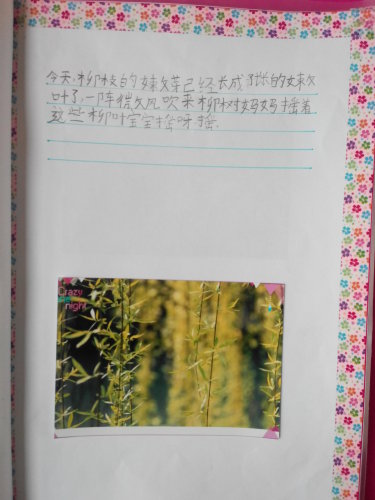 今天,柳枝的嫩芽已经长成了细长的嫩
叶了,一阵微风吹来柳树妈妈摇着
这些柳叶宝宝摇呀摇.
Crazy
night